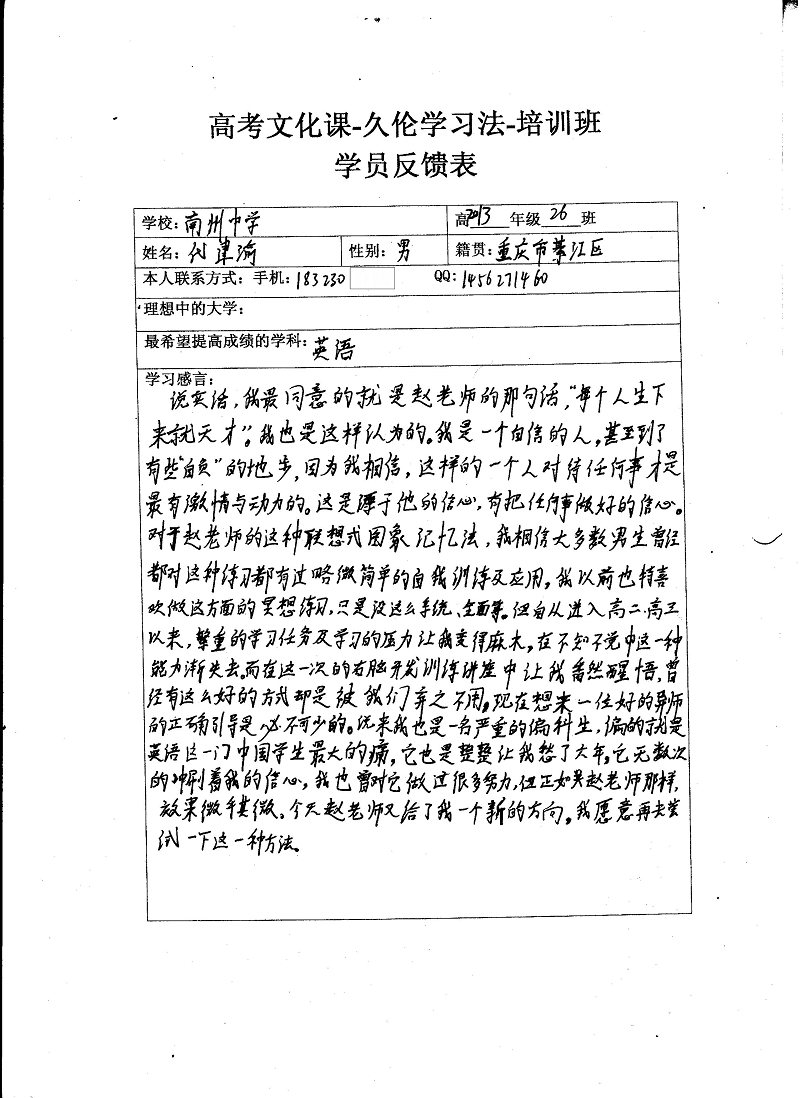 高考文化课-久伦学习法-培训班
学员反馈表
学校：南州中学 高2013年级26班
姓名：代津渝 性别：男 籍贯：重庆市綦江区
本人联系方式：手机：183230 QQ：1456271460
理想中的大学：
最希望提高成绩的学科：英语
学习感言：
说实话，我最同意的就是赵老师的那句话，“每个人生下
来就天才”。我也是这样认为的。我是一个自信的人，甚至到了
有些“自负”的地步，因为我相信，这样的一个人对待任何事才是
最有激情与动力的。这是源于他的信心，有把任何事做好的信心。
对于赵老师的这种联想式图象记忆法，我相信大多数男生曾经
都对这种练习都有过略微简单的自我训练及应用，我以前也特喜
欢做这方面的冥想练习，只是没这么系统、全面等。但自从进入高二.高三
以来，繁重的学习任务及学习的压力让我变得麻木，在不知不觉中这一种
能力渐失去。而在这一次的右脑开发训练讲座中让我翻然醒悟，曾
经有这么好的方式却是被我们弃之不用。现在想来一位好的导师
的正确引导是必不可少的。说来我也是一名严重的偏科生，偏的就是
英语这一门中国学生最大的痛，它也是整整让我愁了大年，它无数次
的冲刷着我的信心，我也曾对它做过很多努力，但正如吴赵老师那样，
效果微乎其微。今天赵老师又给了我一个新的方向。我愿意再去尝
试一下这一种方法。